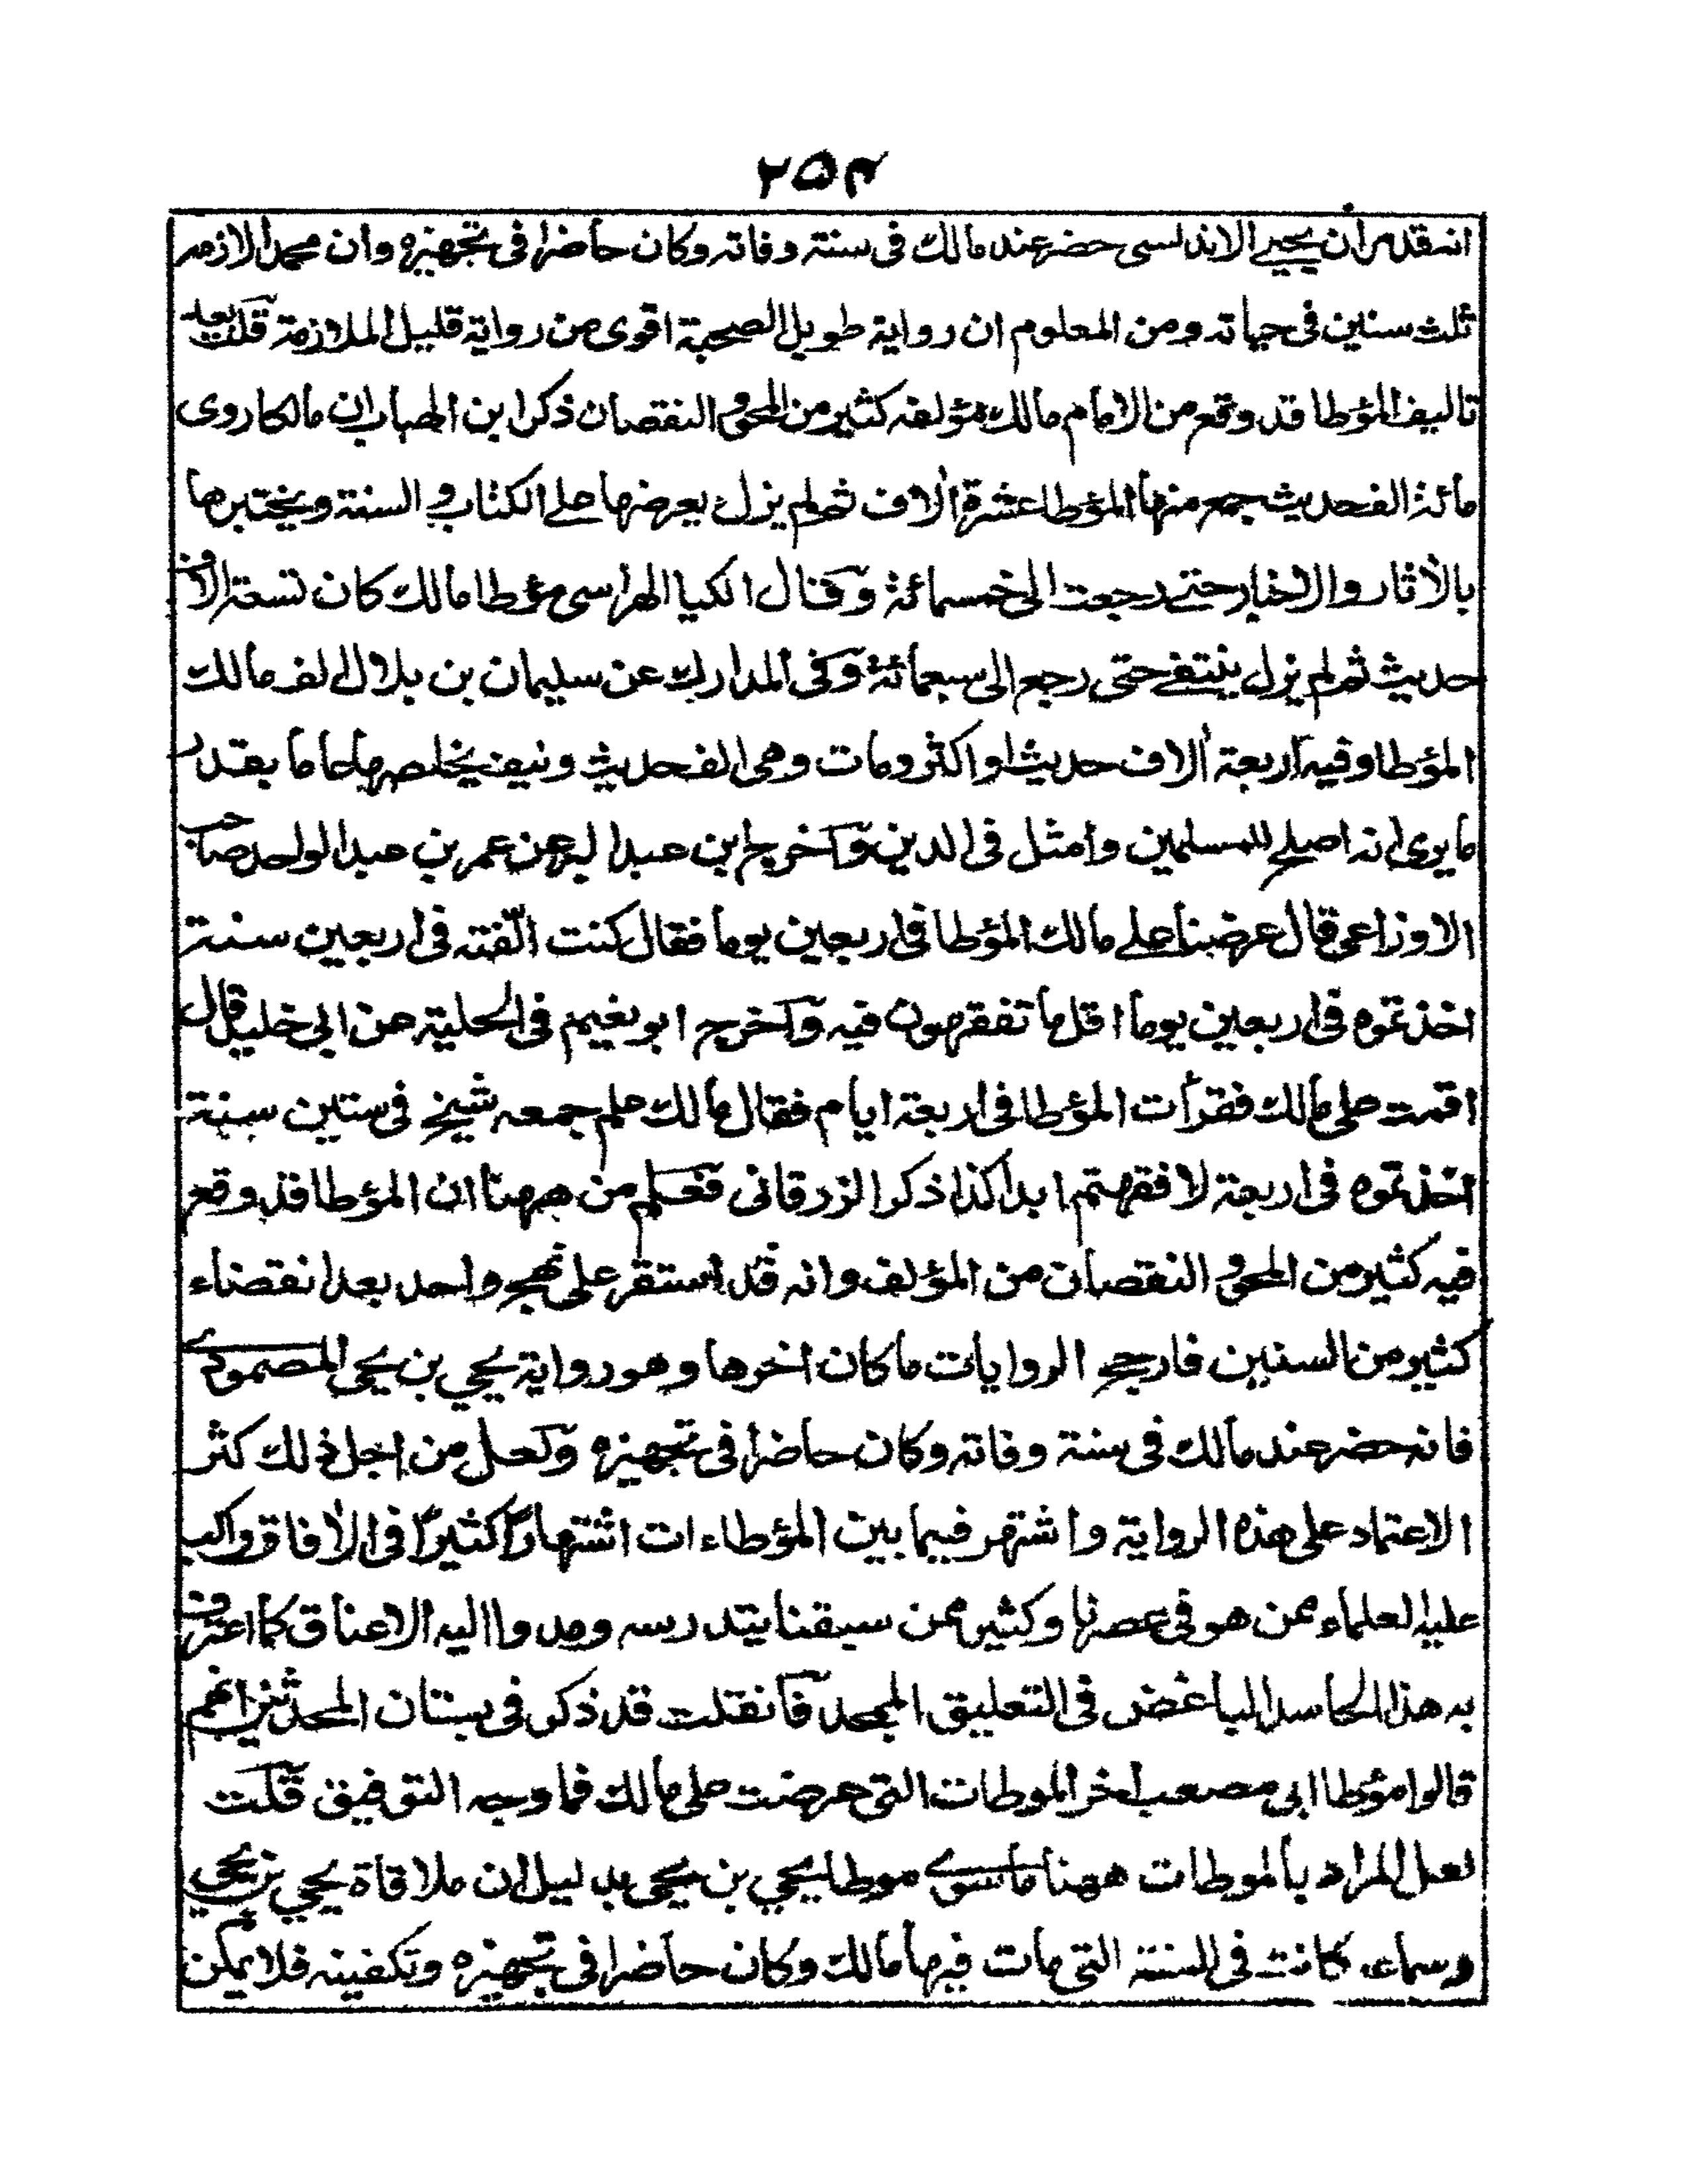 ٢٥٤
انه قد مر ان يحيے الاندلسى حضر عند مالك فى سنة وفاته وكان حاضرا فى تجهيزه وان محمدا لازمه
ثلث سنين فى حياته ومن المعلوم ان رواية طويل الصحبة اقوى من رواية قليل الملازمة قلت بعد
تاليف المؤطا قد وقع من الامام مالك مؤلفه كثير من المحو والنقصان ذكر ابن الهباب ان مالكا روى
مائة الف حديث جمع منها المؤطا عشرة الاف ثم لم يزل يعرضها على الكتاب و السنة ويختبرها
بالاثار والاخبار حتے رجعت الى خمسمائة وقال الكيا الهراسى مؤطا مالك كان تسعة الاف
حديث ثم لم يزل ينتقے حتى رجع الى سبعمائة وفى المدارك عن سليمان بن بلال الف مالك
المؤطا وفيه اربعة الاف حديث او اكثر ومات وهى الف حديث ونيف يخلصها عاما عاما بقدر
ما يرى انه اصلح للمسلمين وامثل فى الدين واخرج ابن عبد البر عن عمر بن عبد الواحد صاحب
الاوزاعى قال عرضنا على مالك المؤطا فى اربعين يوما فقال كنت الّفته فى اربعين سنة
اخذتموه فى اربعين يوما اقل ما تفقهون فيه واخرج ابو نعيم فى الحلية عن ابى خليل قال
اقمت على مالك فقرأت المؤطا فى اربعة ايام فقال مالك علم جمعه شيخ فى ستين سنة
اخذتموه فى اربعة لا فقهتم ابدا كذا ذكر الزرقانى فعلم من ههنا ان المؤطا قد وقع
فيه كثير من المحو و النقصان من المؤلف وانه قد استقر على نهج واحد بعد انقضاء
كثير من السنين فارجح الروايات ما كان اخرها وهو رواية يحيى بن يحيى المصمودے
فانه حضر عند مالك فى سنة وفاته وكان حاضرا فى تجهيزه ولعل من اجل ذلك كثر
الاعتماد على هذه الرواية واشتهر فيما بين المؤطاءات اشتهارًا كثيرًا فى الافاق واكب
عليه العلماء ممن هو فى عصرنا وكثير ممن سبقنا بتدريسه ومدوا اليه الاعناق كما اعترف
به هذا الحاسد الباغض فى التعليق الممجد فانقلت قد ذكر فى بستان المحدثين انهم
قالوا مؤطا ابى مصعب اخر الموطات التى عرضت على مالك فما وجه التوفيق قلت
لعل المراد بالموطات ههنا ما سوے موطا يحيى بن يحيى بدليل ان ملاقاة يحيى بن يحيى
وسماعه كانت فى السنة التى مات فيها مالك وكان حاضرا فى تجهيزه وتكفينه فلا يمكن